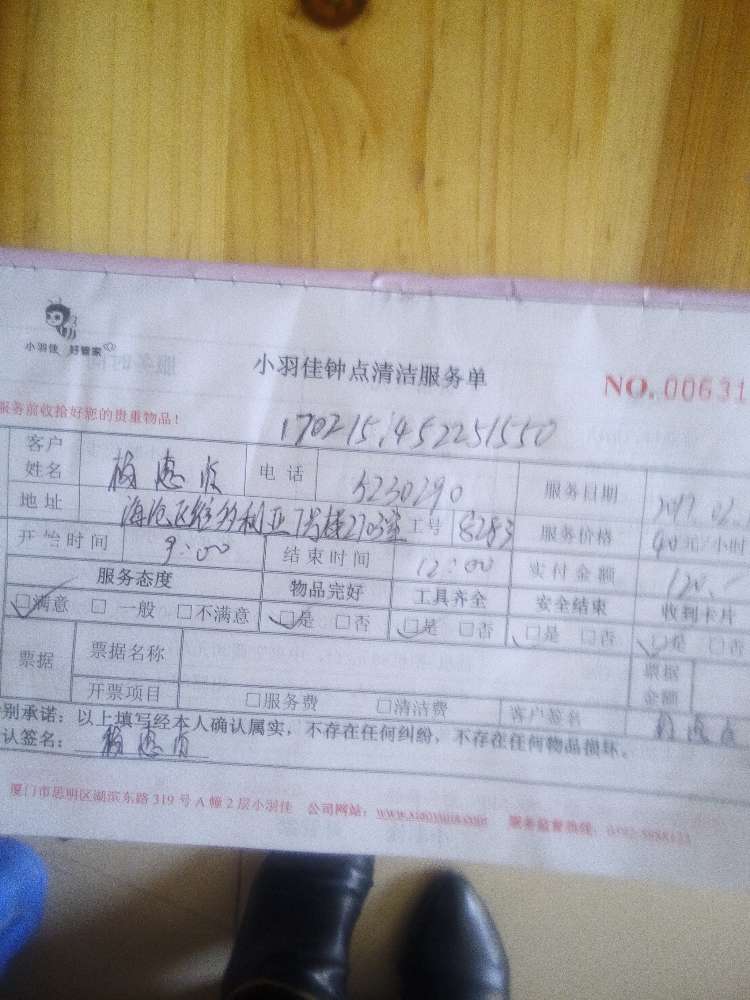 小羽佳 好管家
小羽佳钟点清洁服务单
NO.00631
服务前收拾好您的贵重物品！
170215;452251550
客户姓名 杨惠 电话 5230290 服务日期 2017.02.
地址 海沧区维多利亚7号楼2703室 工号 8283 服务价格 40元/小时
开始时间 9:00 结束时间 12:00 实付金额 120.
服务态度 物品完好 工具齐全 安全结束 收到卡片
☑满意 □一般 □不满意 ☑是 □否 ☑是 □否 ☑是 □否 ☑是 □否
票据 票据名称 票据金额
开票项目 □服务费 □清洁费 客户签名
别承诺：以上填写经本人确认属实，不存在任何纠纷，不存在任何物品损坏。
认签名： 杨惠
厦门市思明区湖滨东路319号A幢2层小羽佳 公司网站： 服务监督热线：